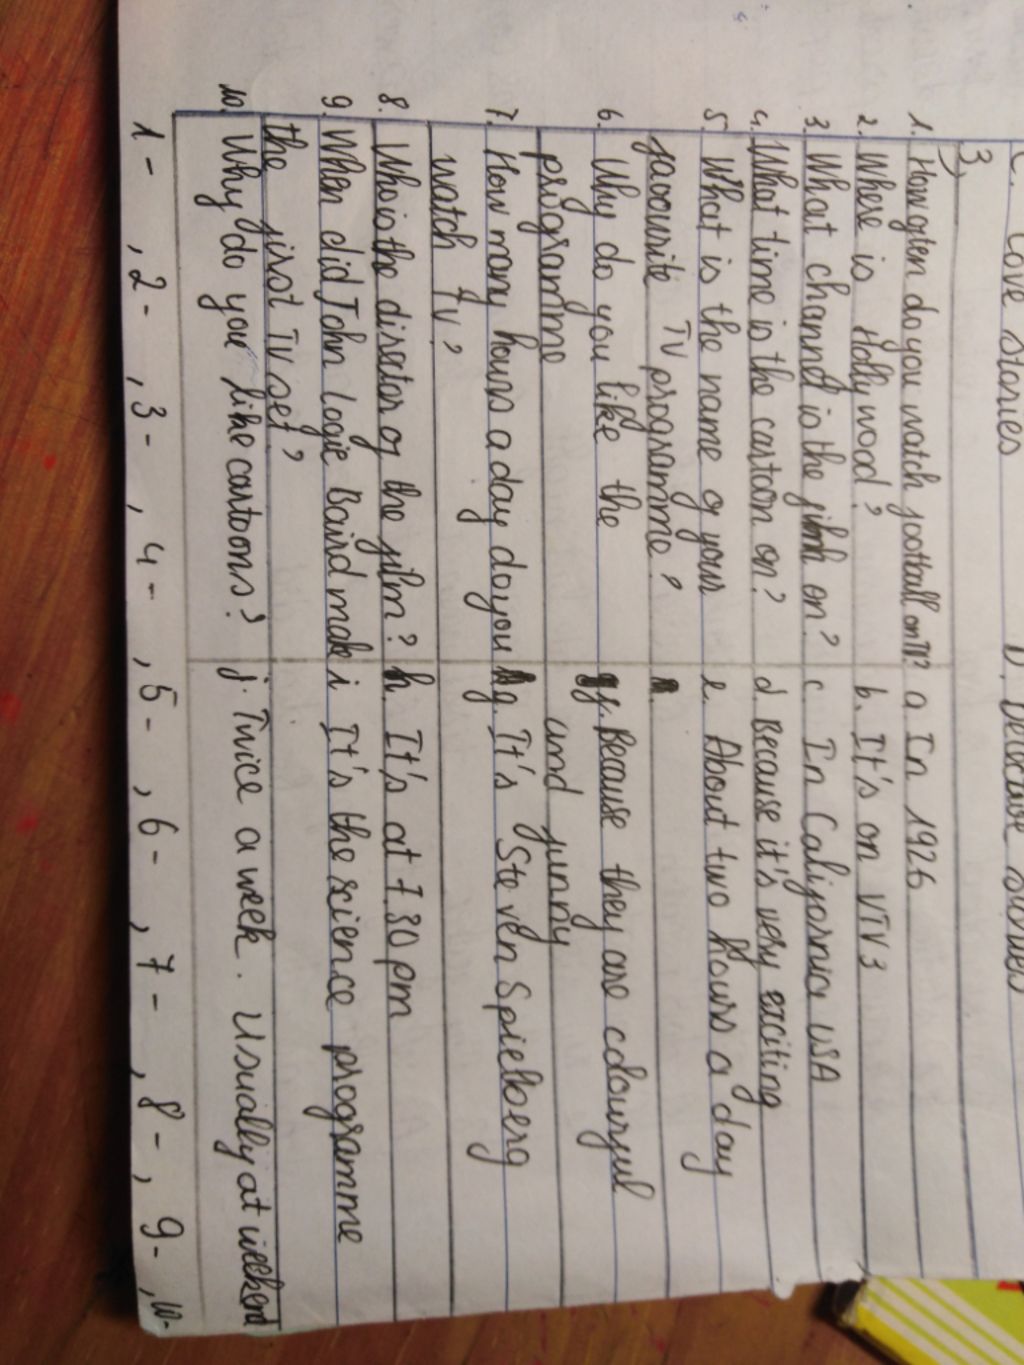 C. Love stories
D. Detective stories
3,
1. How often do you watch football on TV? a In 1926
2. Where is Hollywood? b. It's on VTV3
3. What channel is the film on? c. In California USA
4. What time is the cartoon on? d. Because it's very exciting
5. What is the name of your e. About two hours a day
favourite TV programme?
6. Why do you like the y. Because they are colourful
programme and funny
7. How many hours a day do you g. It's Steven Spielberg
watch TV?
8. Who is the director of the film? h. It's at 7.30 pm
9. When did John Logie Baird make i It's the science programme
the first TV set?
10. Why do you like cartoons? j. Twice a week. Usually at weekend
1- , 2- , 3- , 4- , 5- , 6- , 7- , 8- , 9- , 10-